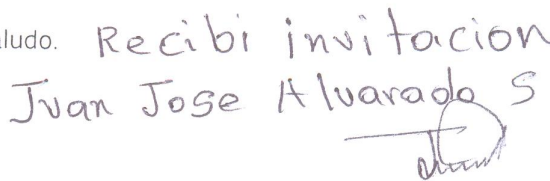 ludo. Recibi invitacion
Juan Jose Alvarado S